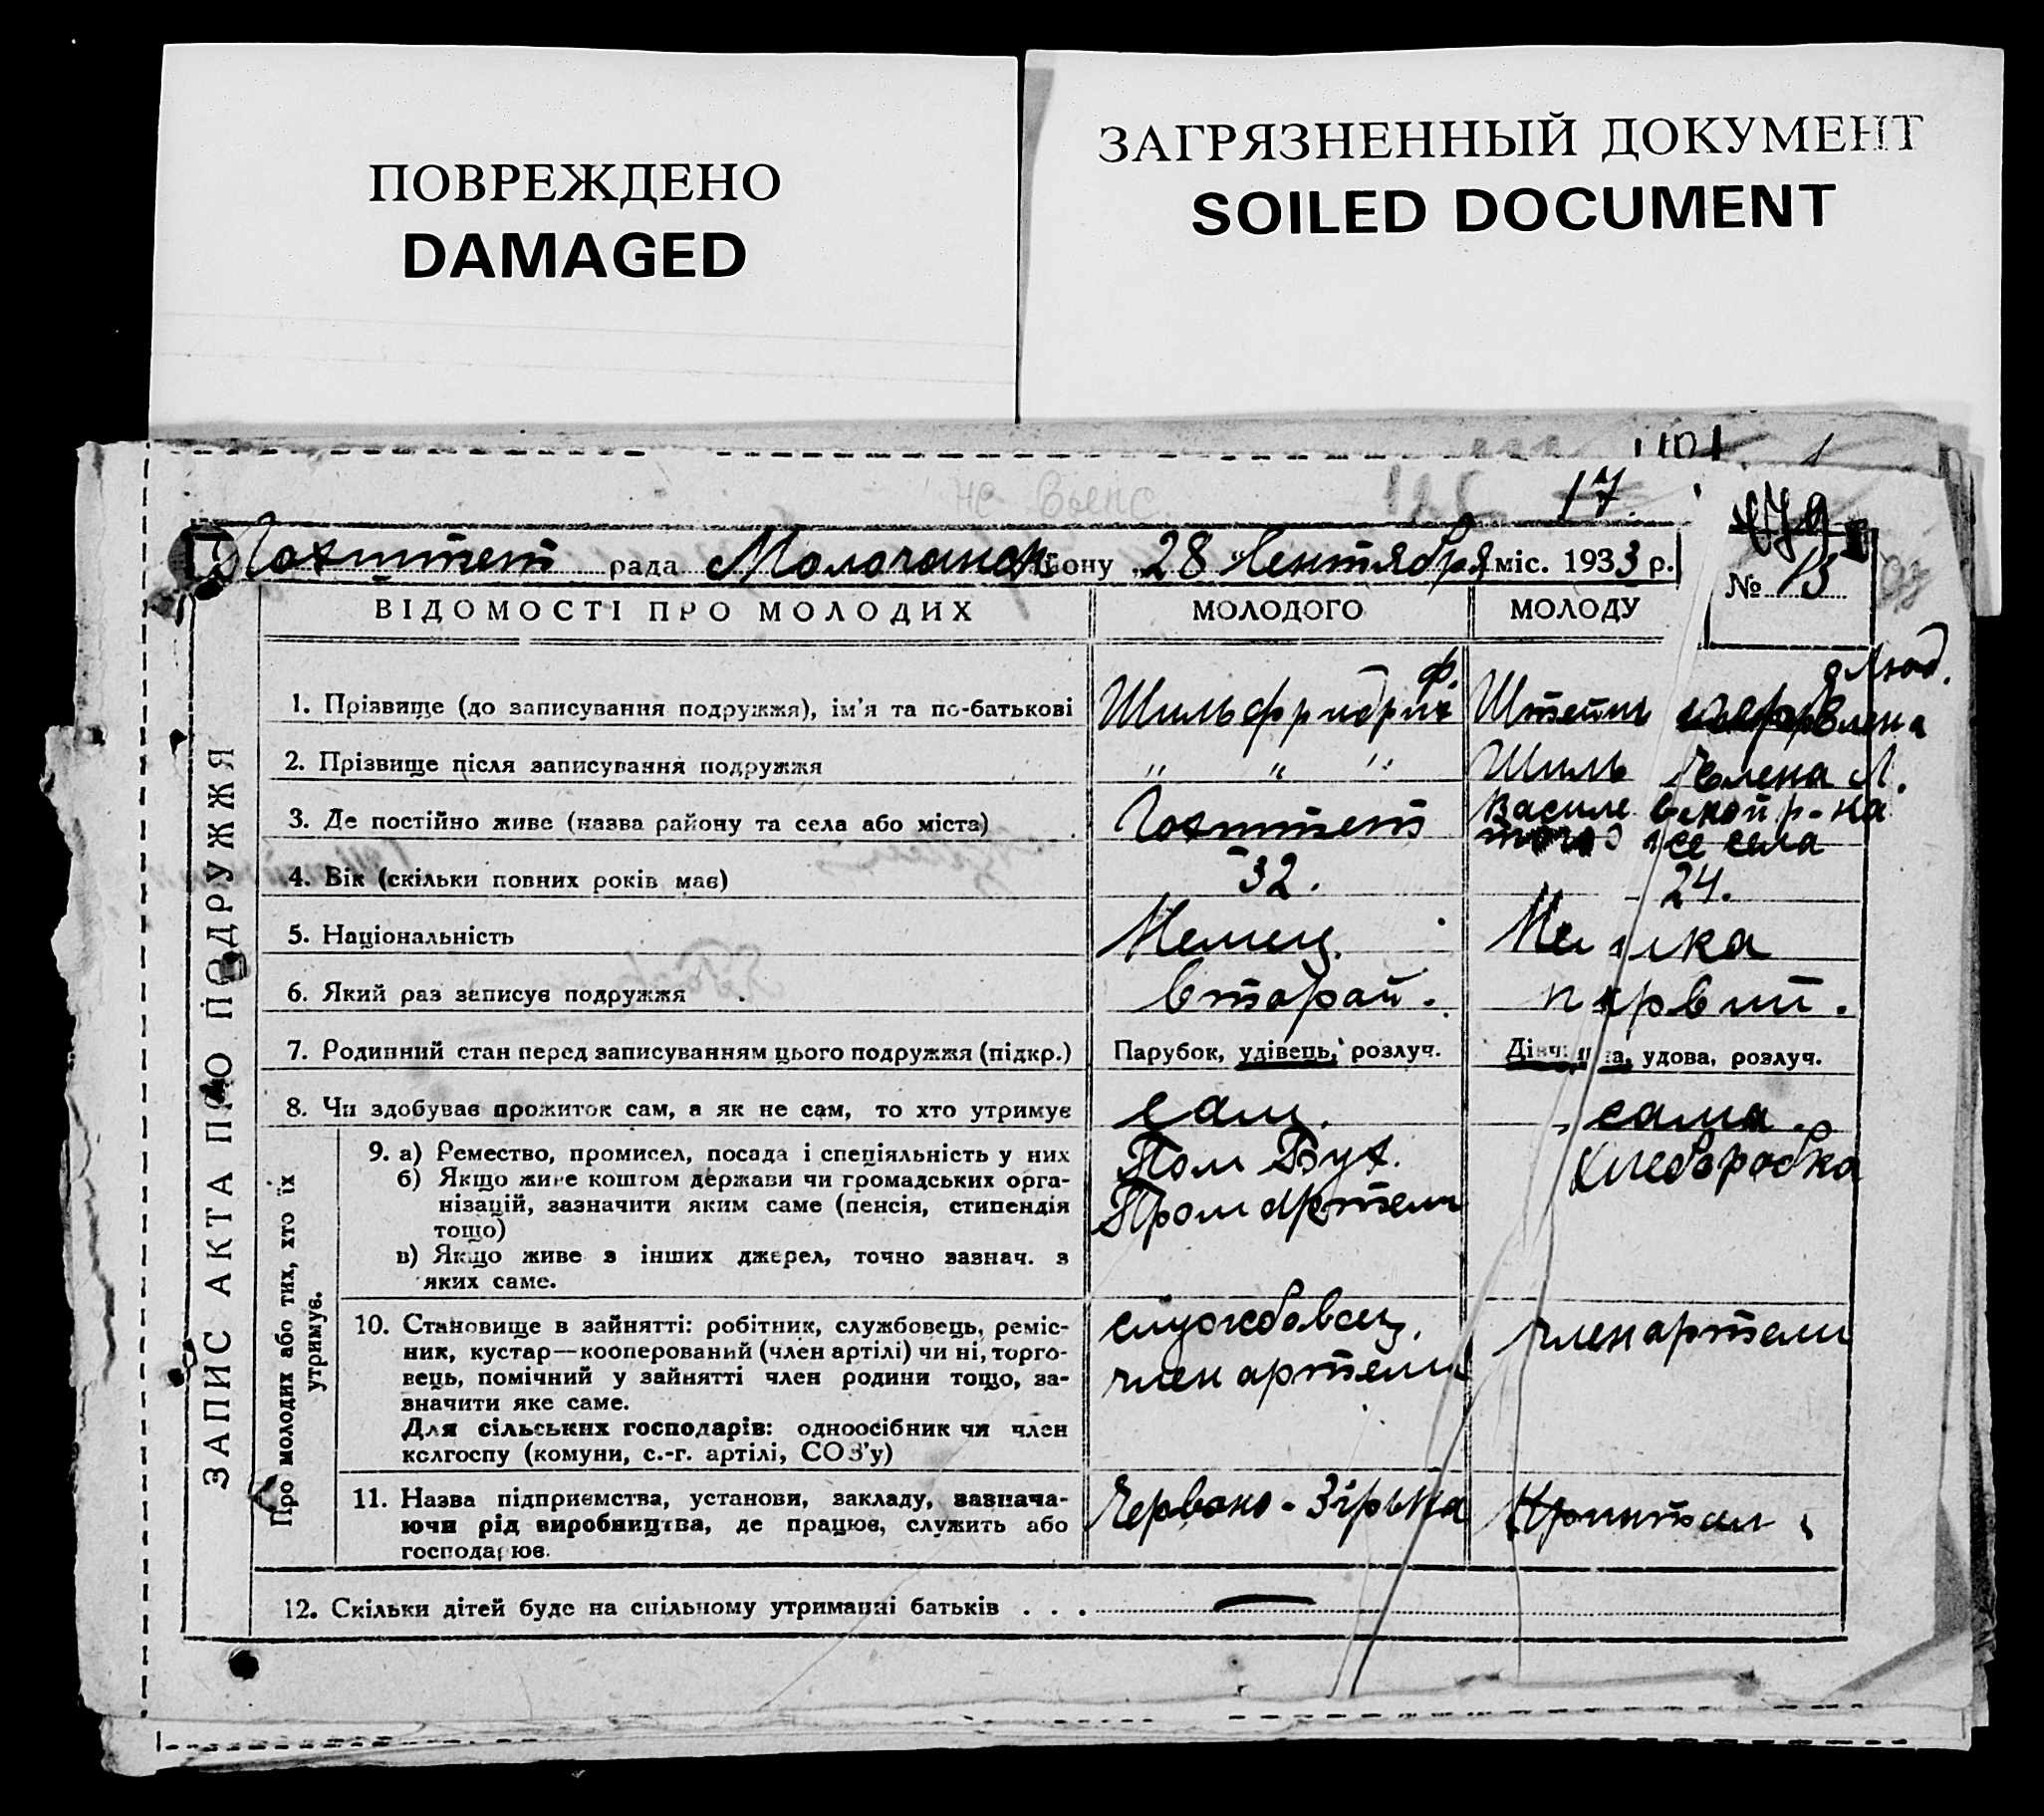 ПОВРЕЖДЕНО
DAMAGED
ЗАГРЯЗНЕННЫЙ ДОКУМЕНТ
SOILED DOCUMENT
17.
Гохштет рада Молочанск йону „28 "Сентября міс. 1933 р.
№ 15
ЗАПИС АКТА ПРО ПОДРУЖЖЯ
ВІДОМОСТІ ПРО МОЛОДИХ МОЛОДОГО МОЛОДУ
1. Прізвище (до записування подружжя), ім'я та по-батькові Шиль фридрих Ф. Штейн Елена Люд.
2. Прізвище після записування подружжя " " " Шиль Елена Л.
3. Де постійно живе (назва району та села або міста) Гохштет Василевской р-на того же села
4. Вік (скільки повних років має) 32. 24.
5. Національність Немец. Немка
6. Який раз записує подружжя второй. первий.
7. Родинний стан перед записуванням цього подружжя (підкр.) Парубок, удівець, розлуч. Дівчина, удова, розлуч.
8. Чи здобував прожиток сам, а як не сам, то хто утримує сам. сама.
Про молодих або тих, хто їх утримує.
9. а) Ремество, промисел, посада і спеціяльність у них Пом Бух. Хлеборобка
б) Якщо живе коштом держави чи громадських орга- Пром артели
нізацій, зазначити яким саме (пенсія, стипендія
тощо)
в) Якщо живе з інших джерел, точно зазнач. з
яких саме.
10. Становище в зайнятті: робітник, службовець, реміс- службовец, член артели
ник, кустар—кооперований (член артілі) чи ні, торго- член артели
вець, помічний у зайнятті член родини тощо, за-
значити яке саме.
Для сільських господарів: одноосібник чи член
колгоспу (комуни, с.-г. артілі, СОЗ'у)
11. Назва підприємства, установи, закладу, зазнача- Червано-Зірька
ючи рід виробництва, де працює, служить або
господарює.
12. Скільки дітей буде на спільному утриманні батьків . . . —